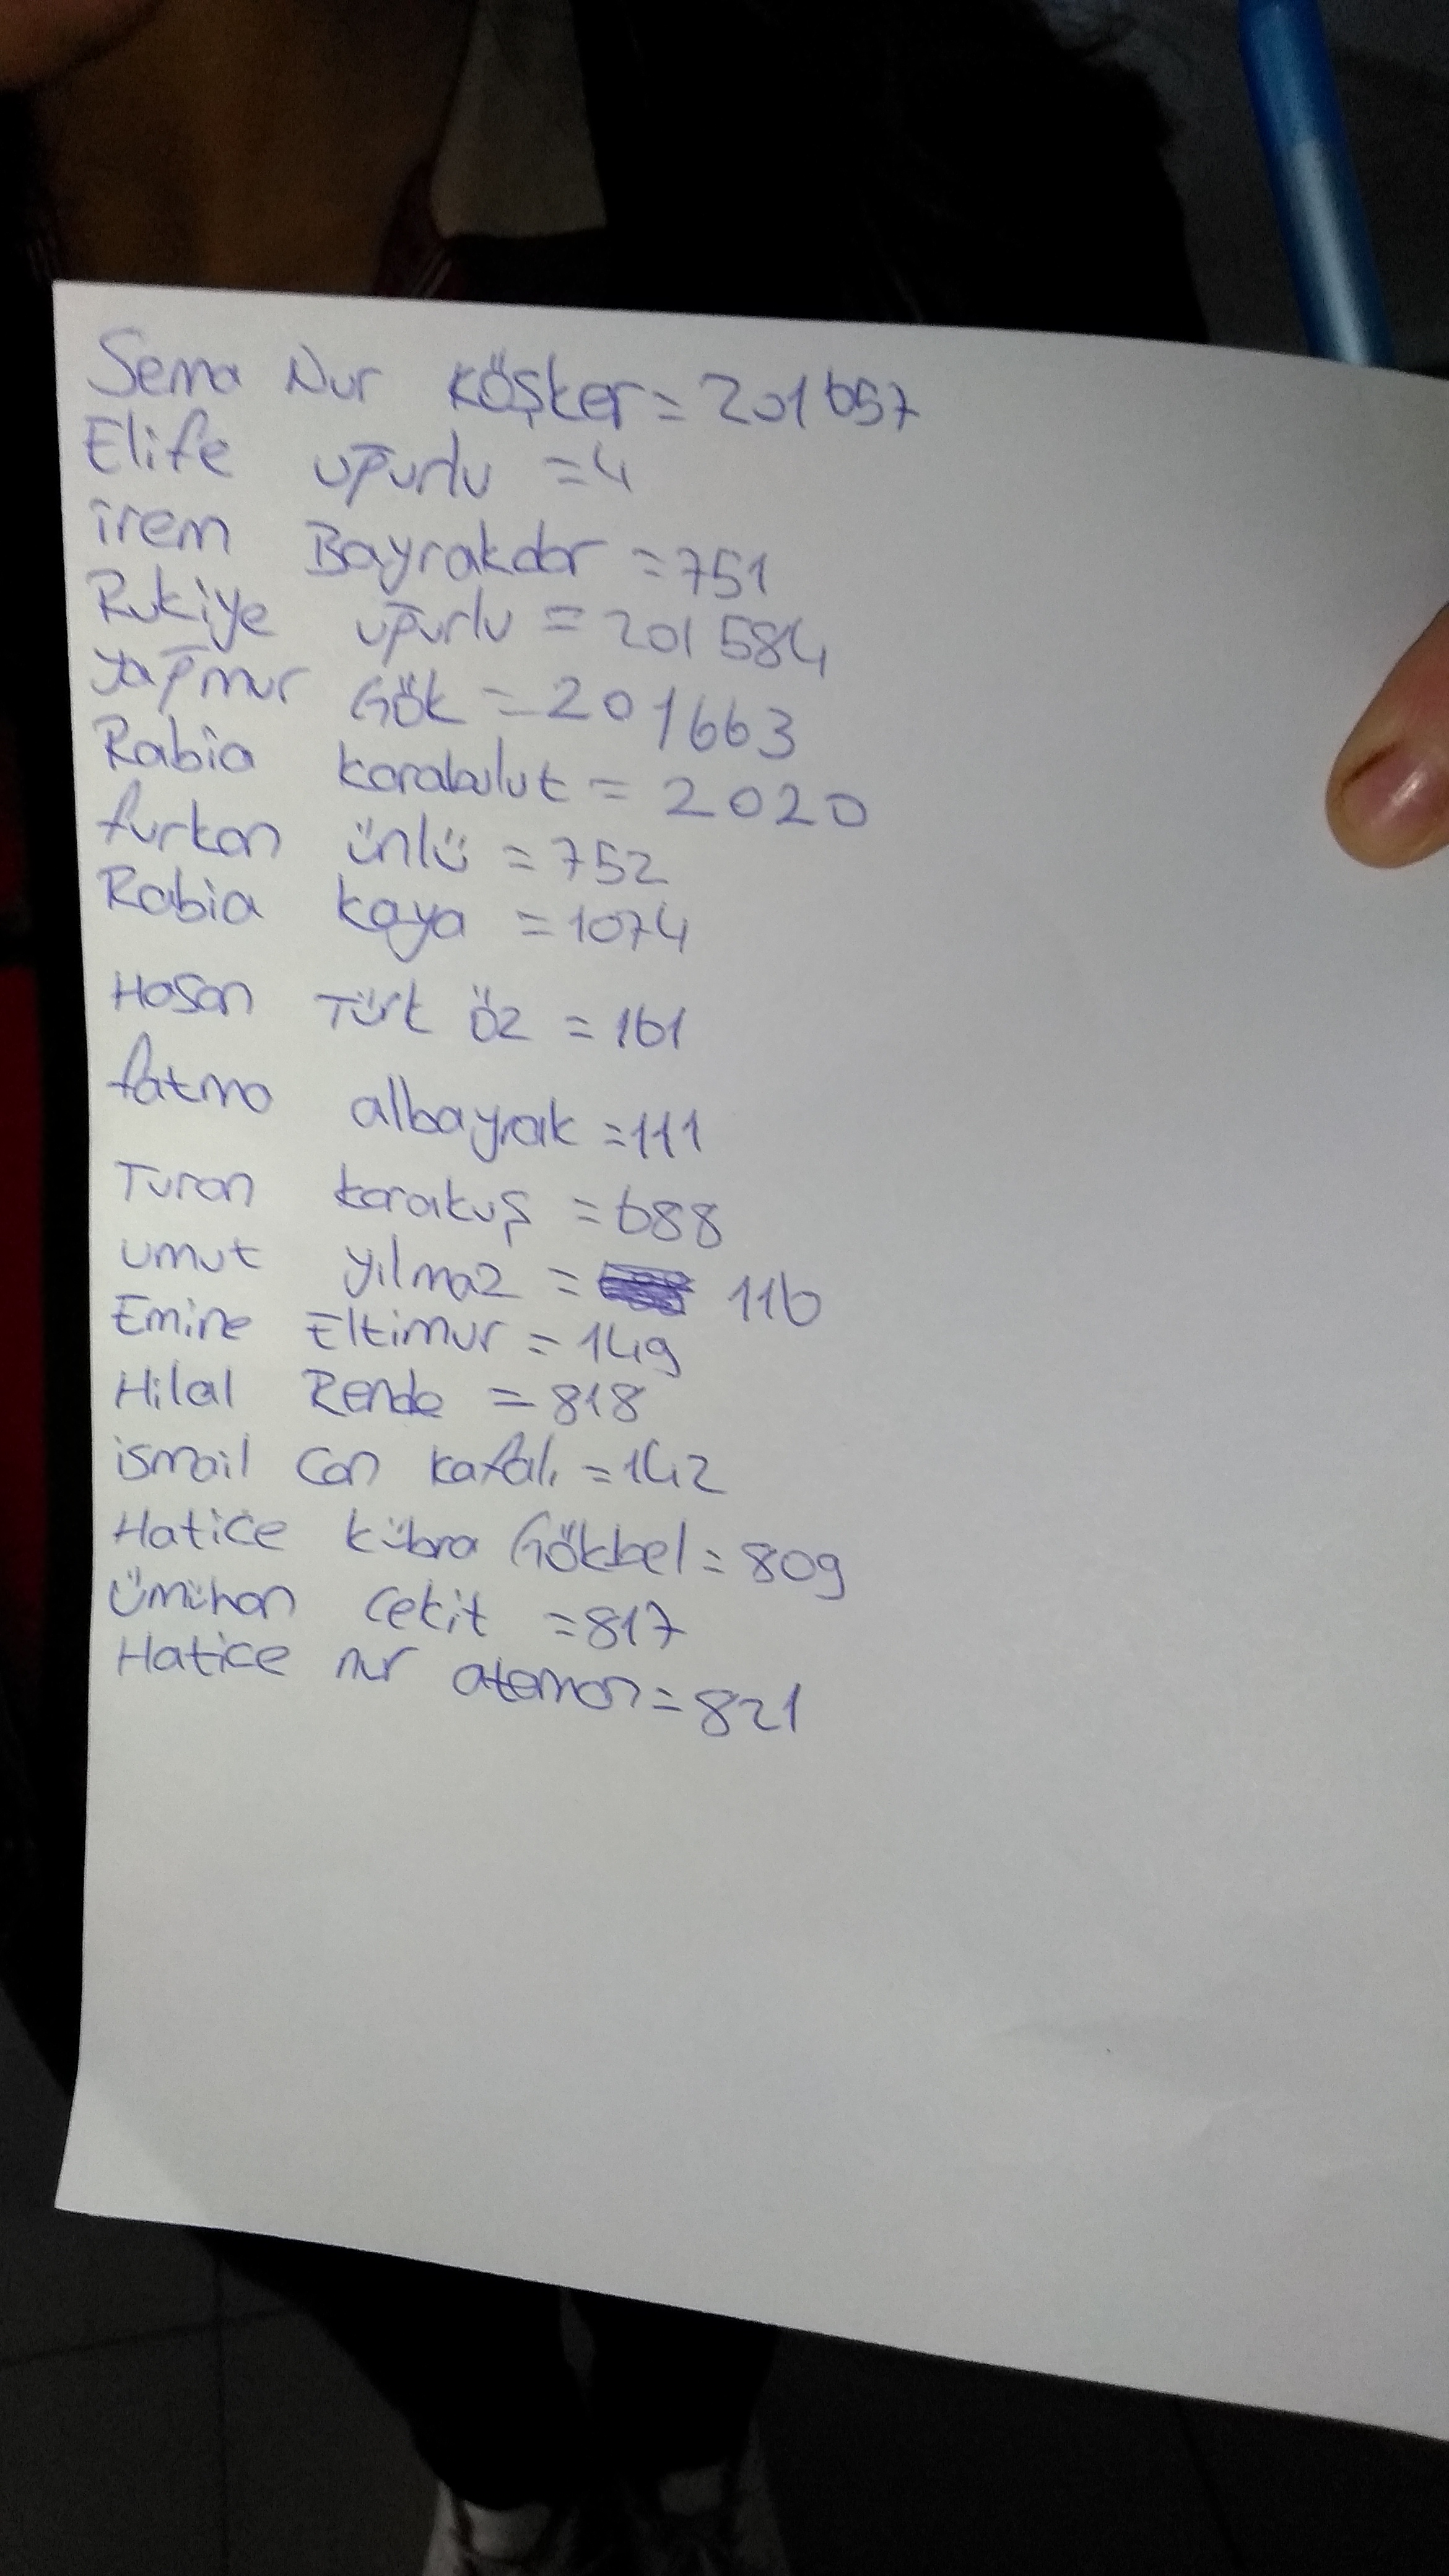 Sema Nur KÖŞker=201657
Elife uğurlu =4
irem Bayrakdar =751
Rukiye uğurlu = 201584
yağmur Gök =201663
Rabia karabulut = 2020
furkan ünlü =752
Rabia kaya =1074
Hasan Türk öz =161
fatma albayrak =111
Turan karakuş =688
umut yılmaz = 116
Emine Eltimur =149
Hilal Rende =818
ismail Can kafalı =142
Hatice kübra Gökbel=809
Ümühan Cekit =817
Hatice nur ataman=821